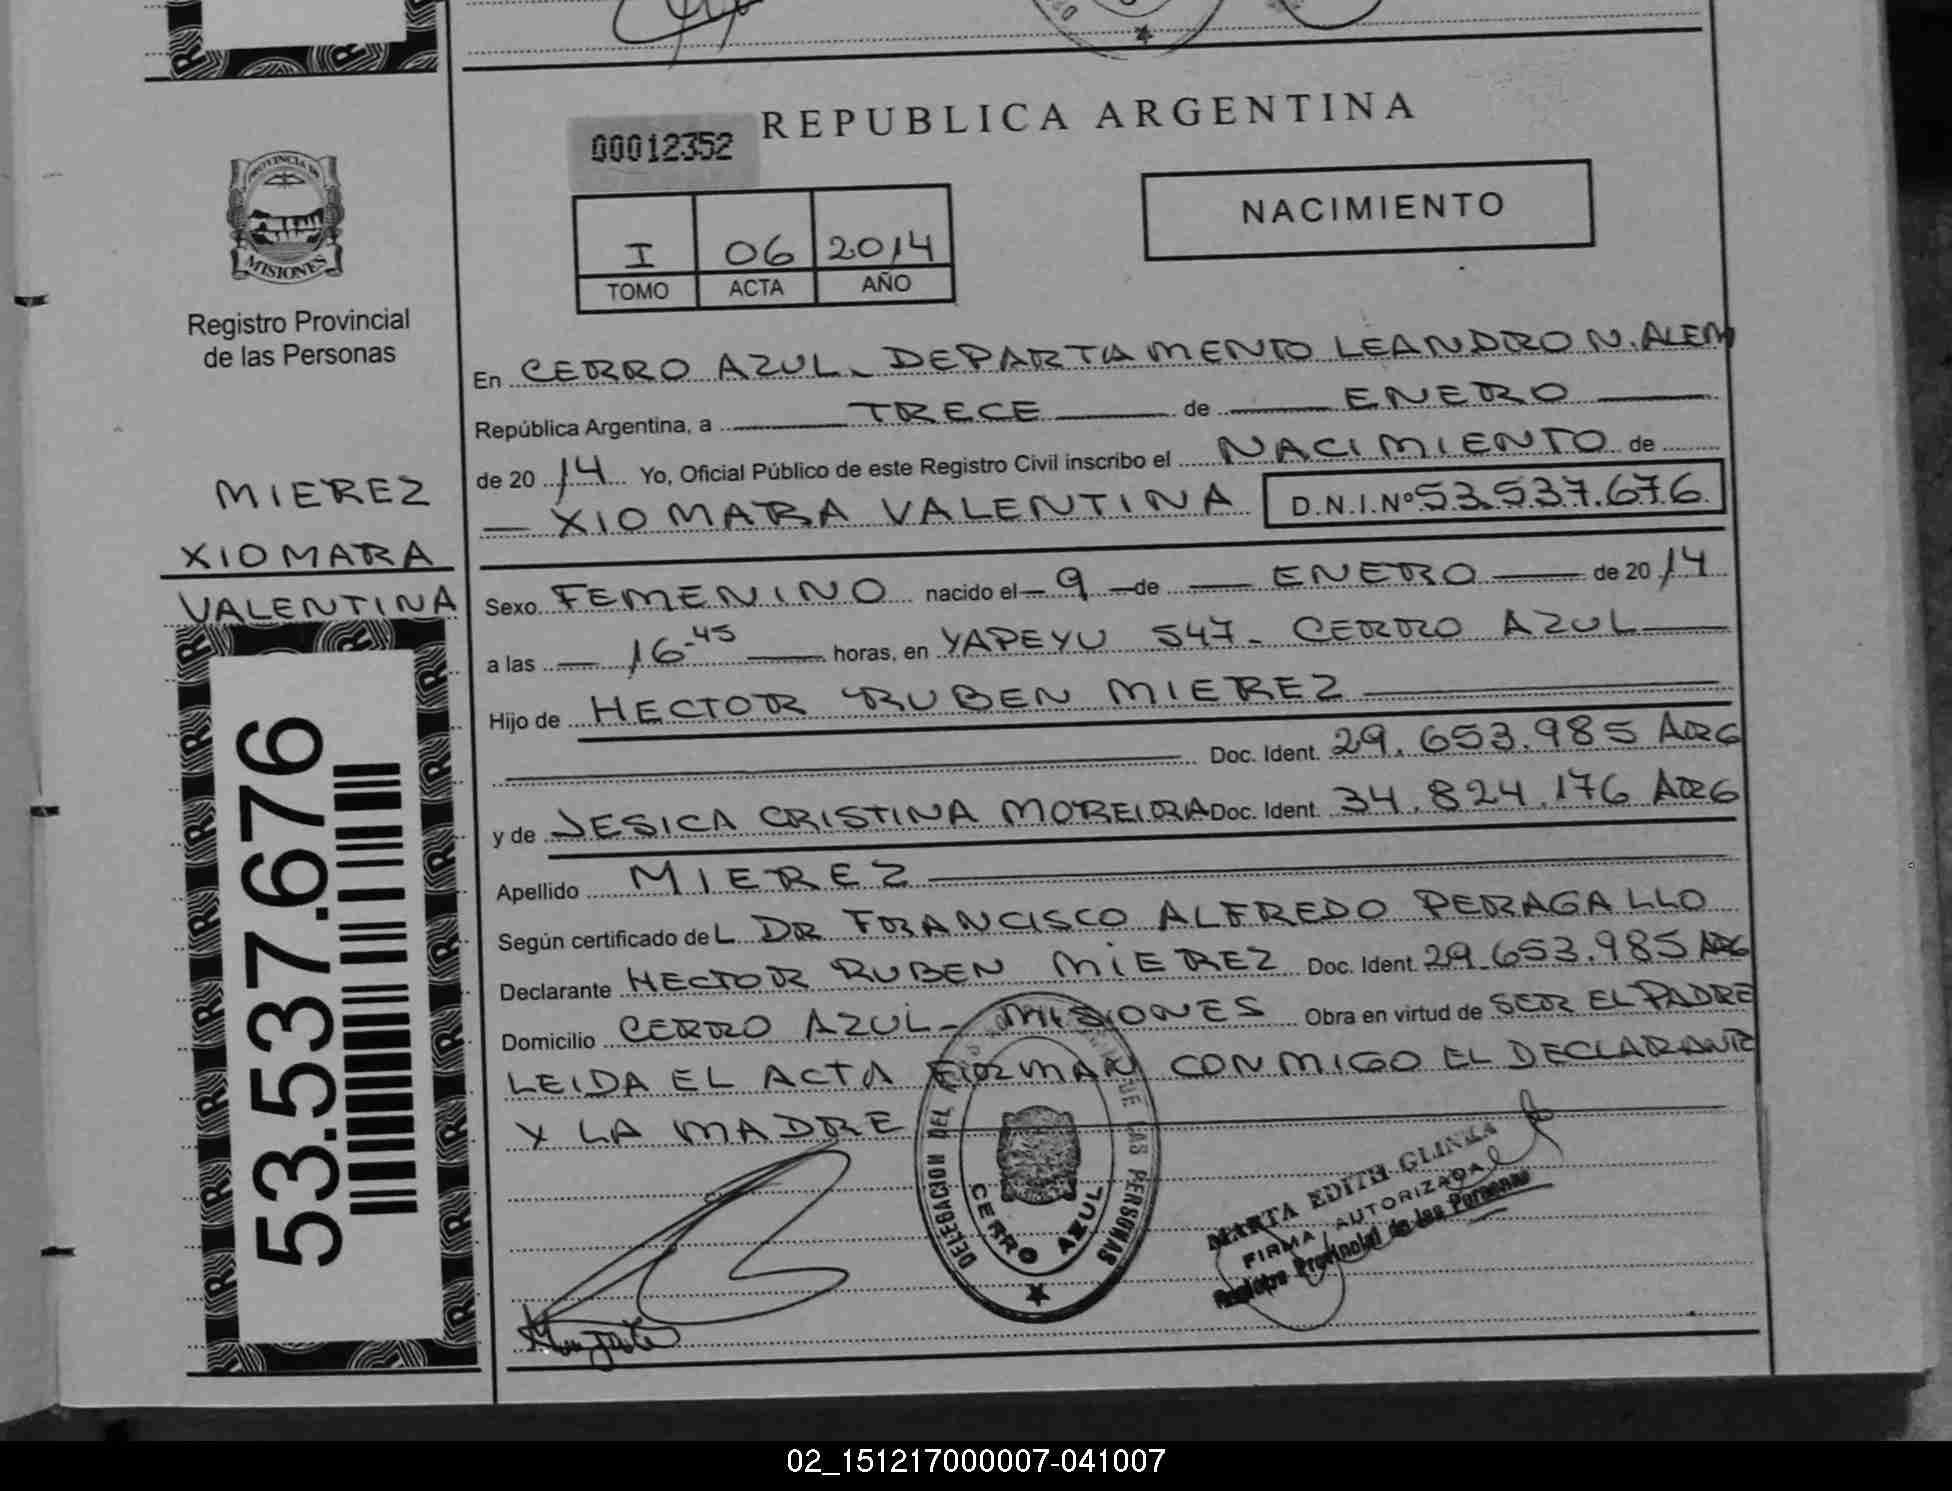 REPUBLICA ARGENTINA
00012352
NACIMIENTO
I 06 2014
TOMO ACTA AÑO
PROVINCIA DE
MISIONES
Registro Provincial
de las Personas
MIEREZ
XIOMARA
VALENTINA
53.537.676
En CERRO AZUL. DEPARTAMENTO LEANDRO N. ALEM
República Argentina, a TRECE de ENERO
de 20 14 Yo, Oficial Público de este Registro Civil inscribo el NACIMIENTO de
XIOMARA VALENTINA D.N.I.Nº 53.537.676.
Sexo FEMENINO nacido el 9 de ENERO de 20 14
a las 16-45 horas, en YAPEYU 547- CERRO AZUL
Hijo de HECTOR RUBEN MIEREZ
Doc. Ident. 29.653.985 ARG
y de JESICA CRISTINA MOREIRA Doc. Ident. 34.824.176 ARG
Apellido MIEREZ
Según certificado de L DR FRANCISCO ALFREDO PERAGALLO
Declarante HECTOR RUBEN MIEREZ Doc. Ident. 29.653.985 ARG
Domicilio CERRO AZUL- MISIONES Obra en virtud de SER EL PADRE
LEIDA EL ACTA FIRMAN CONMIGO EL DECLARANTE
Y LA MADRE
DELEGACION DEL DE LAS PERSONAS
CERRO AZUL
MARTA EDITH GLINKA
FIRMA AUTORIZADA
Registro Provincial de las Personas
02_151217000007-041007